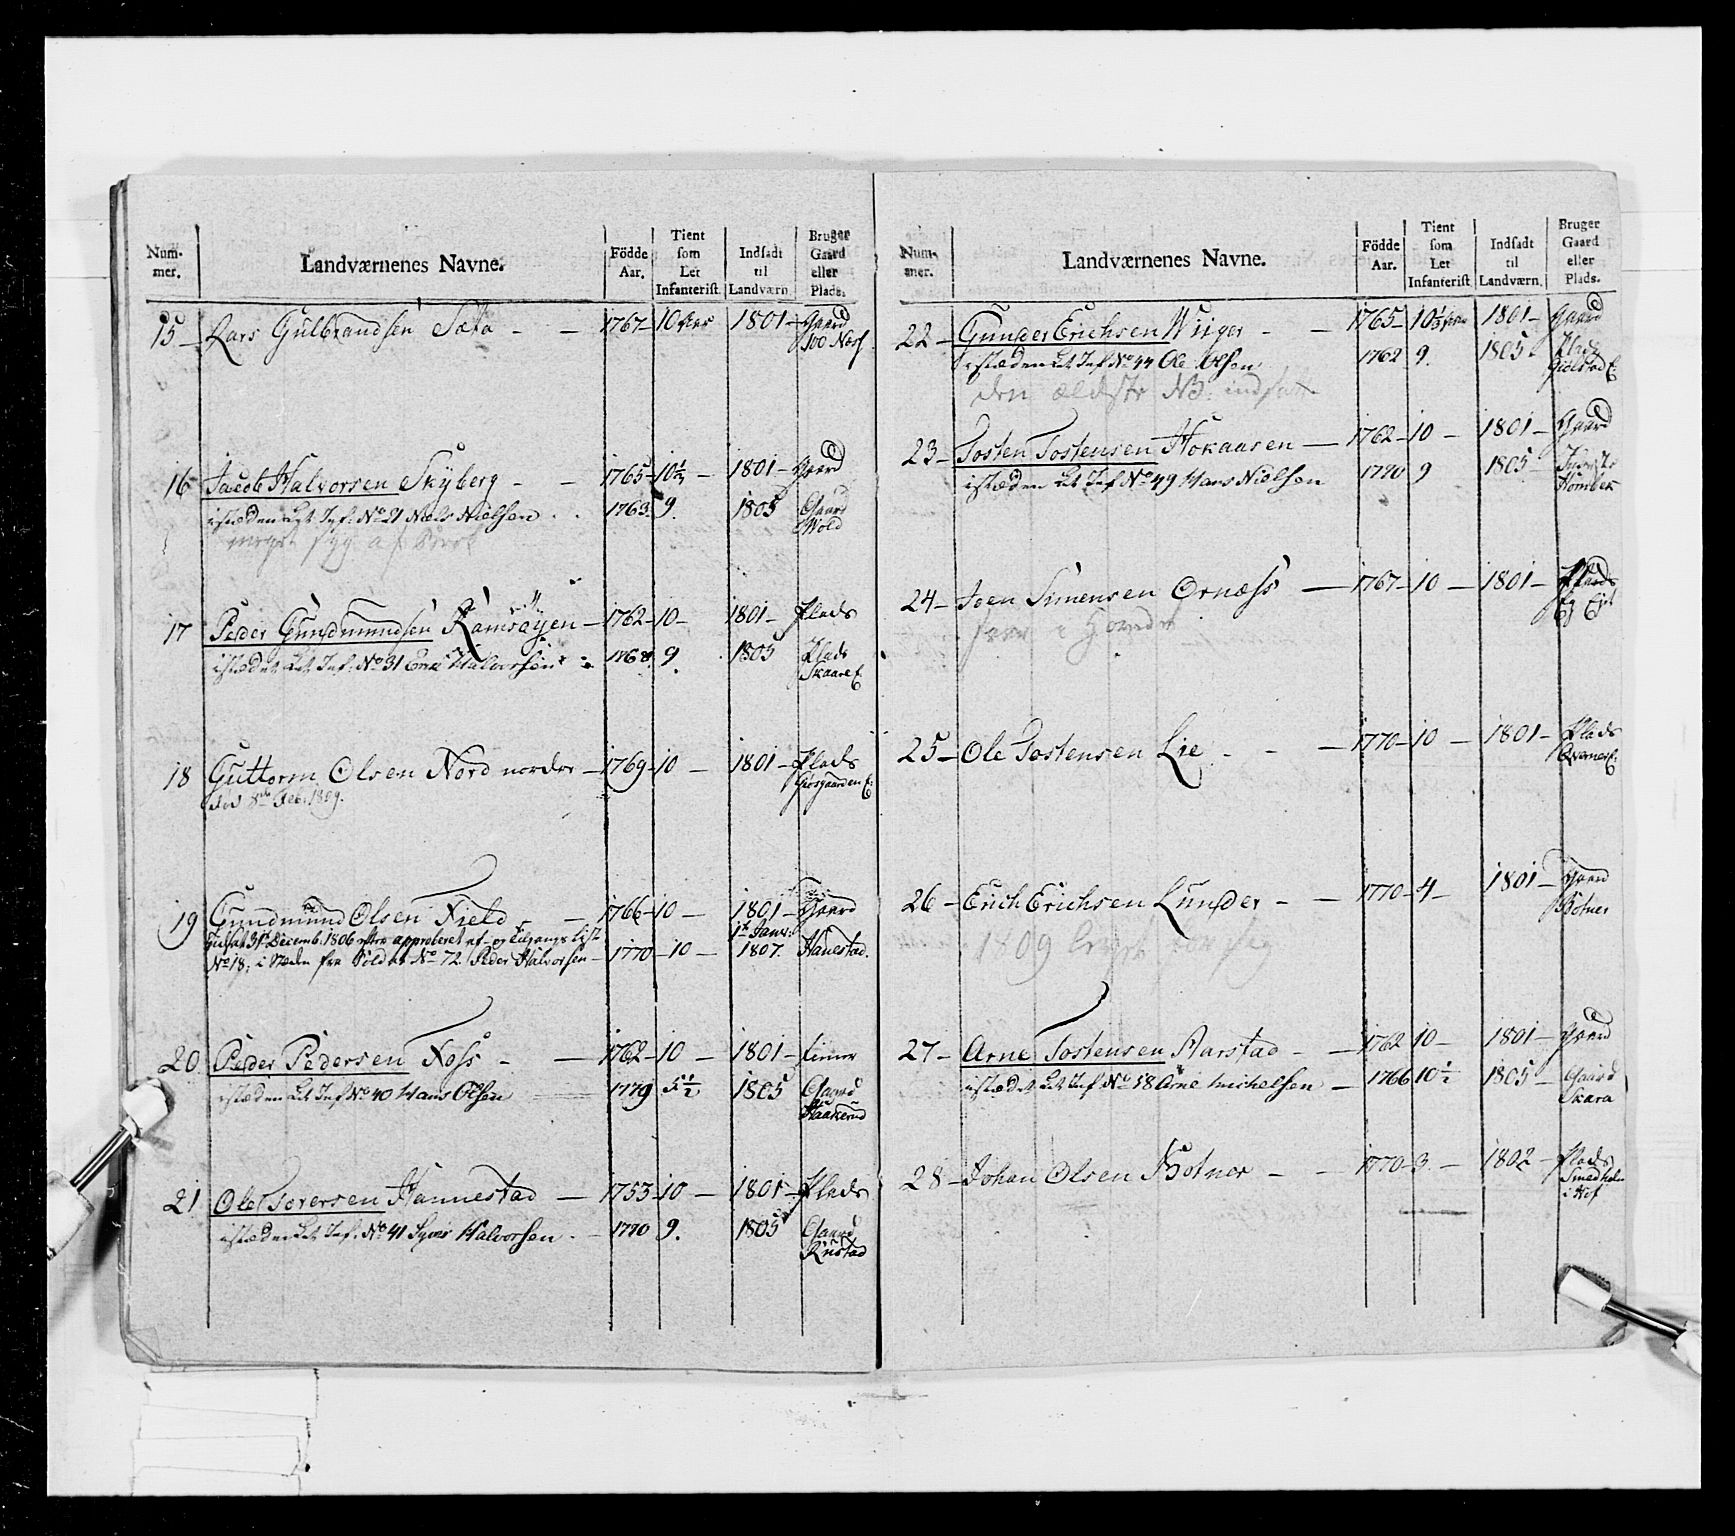 Nummer. Landværnenes Navne. Födde Aar. Tient som Let Infanterist Indsadt til Landværn Bruger Gaard eller Plads.
15 – Lars Gulbrandsen Sæta – – 1767 – 10 1801 – Gaard
16 Jacob Halvorsen Skyberg – – 1765 – 10½ – 1801 – Gaard
istæden Let Inf: No 21 Niels Nielsen . . 1763 9. 1805 Gaard Wold
meget syg af
17 Peder Gundmundsen Ramsøyen – 1762 – 10 – 1801 – Plads
istædet Let Inf: No 31 Halvorsen 1768 9. 1805 Plads Skaare E.
18 Guttorm Olsen Nord nordre – 1769 – 10 – 1801 – Plads
død Feb: 1809.
19 Gundmund Olsen Field – – 1766 – 10 – 1801 – Gaard
31t Decemb: 1806 efter approberet af- og tilgangs List 1t Janv:
No 18, i Stæden for Soldat No 72 Peder Halvorsen – 1770 – 10 – 1807. Hanestad.
20 Peder Pedersen Foss – – 1762 – 10 – 1801 –
istæden Let Inf No 40 Hans Olsen 1779 5½ 1805 Gaard Haakerud
21 Ole Torersen Hannestad – 1753 – 10 – 1801 – Plads
istæden Let Inf: No 41 Halvorsen . – 1770 9. 1805 Gaard Rustad
Nummer. Landværnenes Navne. Födde Aar. Tient som Let Infanterist Indsadt til Landværn. Bruger Gaard eller Plads.
22 – Gunder Erichsen Wiiger – – 1765 – 10½ 1801 – Gaard
istæden Let Inf No 44 Ole Olsen 1762 9. 1805 Plads
den ældste NB: indsatt
23 – Tosten Tostensen Hokaasen – 1762 – 10 – 1801 – Gaard
istæden Let Inf No 49 Hans Nielsen 1770 9 1805
24 – Joen Simensen Ornæss – 1767 – 10 – 1801 – Plads
25 – Ole Tostensen Lie – – – 1770 – 10 – 1801 – Plads
26 – Erich Erichsen Lunder – – 1770 – 4 – 1801 – Gaard
Botner
1809
27 – Arne Tostensen Aarstad – – 1762 10 – 1801 – Gaard
istædet Let Inf: No 58 Arne Michelsen – 1766 10½ 1805 – Gaard Skara
28 – Johan Olsen Botner – – 1770 – 3. – 1802 – Plads